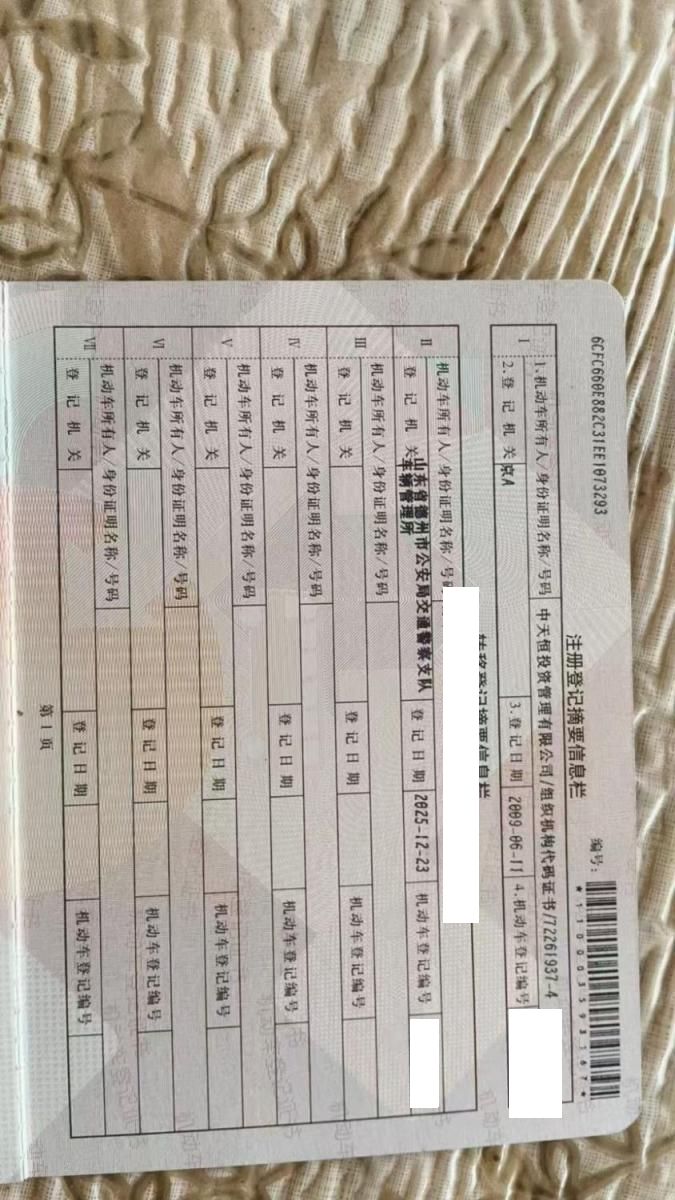 6CFC660E882C31EE1073293
注册登记摘要信息栏
编号:
*110003593167*
I
1.机动车所有人/身份证明名称/号码
中天恒投资管理有限公司/组织机构代码证书/72261937-4
2.登记机关
京A
3.登记日期
2009-06-11
4.机动车登记编号
转移登记摘要信息栏
II
机动车所有人/身份证明名称/号码
登记机关
山东省德州市公安局交通警察支队
车辆管理所
登记日期
2025-12-23
机动车登记编号
III
机动车所有人/身份证明名称/号码
登记机关
登记日期
机动车登记编号
IV
机动车所有人/身份证明名称/号码
登记机关
登记日期
机动车登记编号
V
机动车所有人/身份证明名称/号码
登记机关
登记日期
机动车登记编号
VI
机动车所有人/身份证明名称/号码
登记机关
登记日期
机动车登记编号
VII
机动车所有人/身份证明名称/号码
登记机关
登记日期
机动车登记编号
第1页